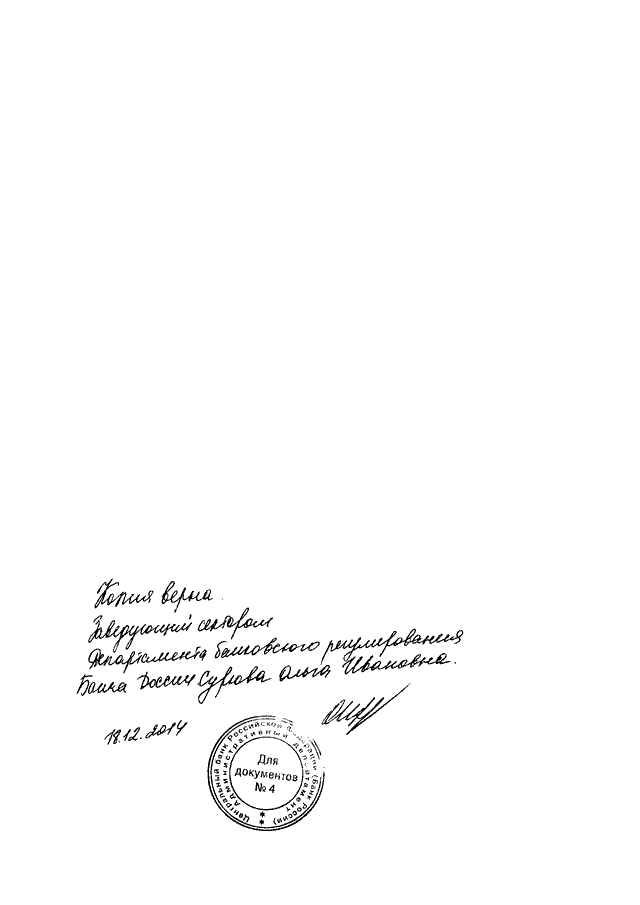 Копия верна
Заведующий сектором
Департамента банковского регулирования
Банка России Ольга Ивановна.
18.12.2014
Центральный банк Российской Федерации (Банк России)
Административный департамент
Для
документов
№ 4